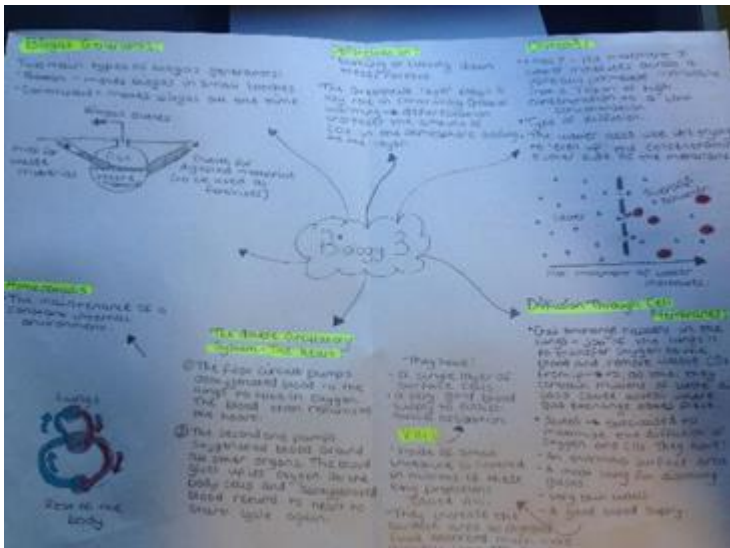 Biogas Generators
Two main types of biogas generators:
Batch - makes biogas in small batches
Continuous - makes biogas all the time
Biogas outlet
Inlet for
waste
material
Outlet for
digested material
(to be used as
fertiliser)
Deforestation
trees/forests
key role in
warming
the amount of
CO2 in the atmosphere
the layer
Osmosis
water molecules across a
partially permeable membrane
from a region of high
concentration to a low
concentration
Type of diffusion.
The water
to 'even up' the concentration
either side of the membrane
water
Net movement of water
molecules
Biology 3
Homeostasis
The maintenance of a
constant internal
environment
Lungs
Rest of the
body
The double circulatory
System - The Heart
① The first circuit pumps
deoxygenated blood to the
lungs to take in oxygen.
The blood then returns to
the heart.
② The second one pumps
oxygenated blood around
the other organs. The blood
gives up its oxygen to the
body cells and deoxygenated
blood returns to heart to
start cycle again.
They have:
- A single layer of
surface cells
- a very good blood
supply to
Villi
Inside of small
intestine is covered
in millions of these
tiny projections
called villi.
They increase the
surface area
Diffusion Through Cell
Membranes
Gas exchange happens in the
lungs - job of the lungs is
to transfer oxygen to the
blood and remove waste CO2
from it - to do this they
contain millions of little air
sacs called alveoli where
gas exchange takes place.
Alveoli → specialised to
maximise the diffusion of
oxygen and CO2. They have:
- An enormous surface area
- A moist lining for dissolving
gases
- Very thin walls
- A good blood supply